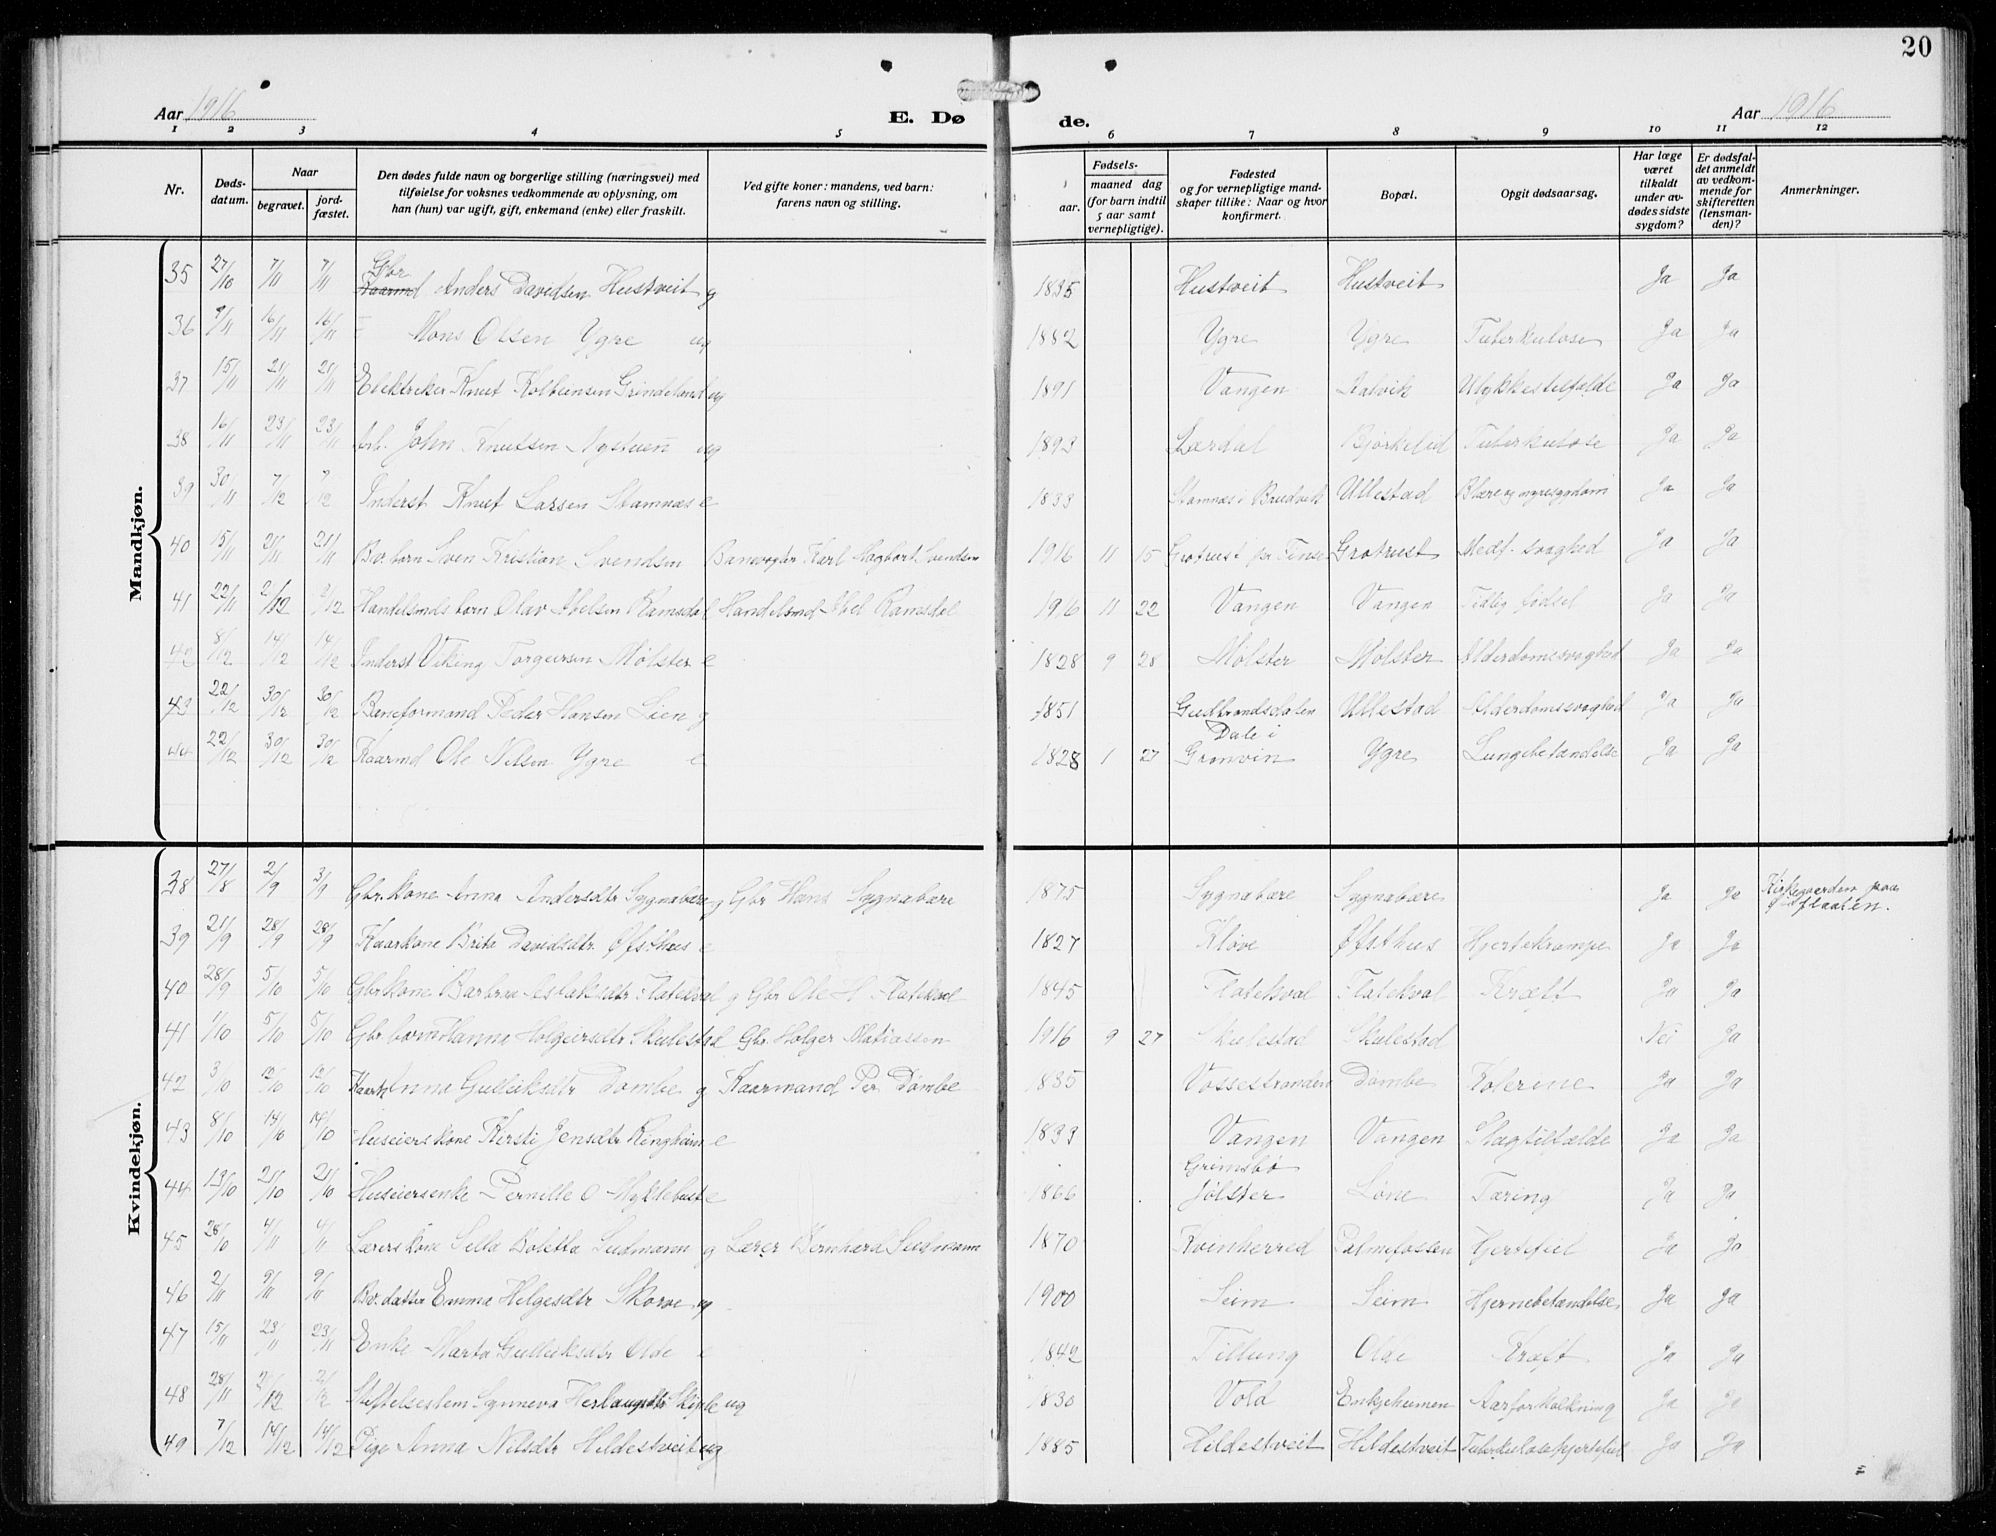 20
Aar 1916 E. Dø de. Aar 1916
1 2 3 4 5 6 7 8 9 10 11 12
Nr. Døds-datum. Naar begravet. jord-fæstet. Den dødes fulde navn og borgerlige stilling (næringsvei) med tilføielse for voksnes vedkommende av oplysning, om han (hun) var ugift, gift, enkemand (enke) eller fraskilt. Ved gifte koner: mandens, ved barn: farens navn og stilling. Fødsels- aar. maaned dag (for barn indtil 5 aar samt vernepligtige). Fødested og for vernepligtige mand-skaper tillike: Naar og hvor konfirmert. Bopæl. Opgit dødsaarsag. Har læge været tilkaldt under av-dødes sidste sygdom? Er dødsfal-det anmeldt av vedkom-mende for skifteretten (lensman-den)? Anmerkninger.
Mandkjøn.
35 27/10 7/11 7/11 Gbr. Kaarmd Anders Davidsen Hustveit g 1835 Hustveit Hustveit Ja Ja
36 9/11 16/11 16/11 Mons Olsen Ygre ug 1882 Ygre Ygre Tuberkulose Ja Ja
37 15/11 21/11 21/11 Elektriker Knut Kolbeinsen Grindeland ug 1891 Vangen Aalvik Ulykkestilfælde Ja Ja
38 16/11 23/11 23/11 Arb. John Knutsen Nystuen ug 1893 Lærdal Bjørkelid Tuberkulose Ja Ja
39 30/11 7/12 7/12 Inderst Knut Larsen Stamnæs e 1833 Stamnes i Bruvik Ullestad Blære og nyresygdom Ja Ja
40 15/11 21/11 21/11 Bv. barn Sven Kristian Svendsen Banevogter Karl Hagbart Svendsen 1916 11 15 Grotrust pr Finse Grotrust Medf. svaghed Ja Ja
41 22/11 2/12 2/12 Handelsmds barn Olav Abelsen Ramsdal Handelsmd Abel Ramsdal 1916 11 22 Vangen Vangen Tidlig fødsel Ja Ja
42 8/12 14/12 14/12 Inderst Viking Torgeirsen Mølster e 1828 9 28 Mølster Mølster Alderdomssvaghed Ja Ja
43 22/12 30/12 30/12 Baneformand Peder Hansen Lien g 1851 Gudbrandsdalen Ullestad Alderdomssvaghed Ja Ja
44 22/12 30/12 30/12 Kaarmd Ole Nilsen Ygre e 1828 1 27 Dale i Granvin Ygre Lungebetændelse Ja Ja
Kvindekjøn.
38 27/8 2/9 3/9 Gbr. kone Anna Andersdtr Sygnabære g Gbr Hans Sygnabære 1875 Sygnabære Sygnabære Ja Ja Kirkegaarden paa Flaaten.
39 21/9 28/9 28/9 Kaarkone Brita Davidsdtr. Øfsthus e 1827 Kløve Øfsthus Hjertekrampe Ja Ja
40 28/9 5/10 5/10 Gbr kone Barbra Aslaksdtr Flatekval g Gbr Ole H. Flatekval 1845 Flatekval Flatekval Kræft Ja Ja
41 1/10 5/10 5/10 Gbr. barn Hanna Holgersdtr Skulestad Gbr. Holger Matiassen 1916 9 27 Skulestad Skulestad Nei Ja
42 3/10 12/10 12/10 Kaark Anna Gulleiksdtr Dømbe g Kaarmand Per Dømbe 1835 Vossestranden Dømbe Kolerine Ja Ja
43 8/10 14/10 14/10 Huseierskone Kersti Jensdtr Ringheim e 1833 Vangen Vangen Slagtilfælde Ja Ja
44 13/10 21/10 21/10 Huseiersenke Pernille O Myklebust e 1866 Grimsbø Jølster Løne Tæring Ja Ja
45 28/10 4/11 4/11 Lærerskone Sella Boletta Sudmann g Lærer Bernhard Sudmann 1870 Kvinherred Palmefossen Hjertefeil Ja Ja
46 2/11 9/11 9/11 Bv. datter Emma Helgesdtr Skorve ug 1900 Seim Seim Hjernebetændelse Ja Ja
47 15/11 23/11 23/11 Enke Marta Gulleiksdtr Olde e 1842 Tillung Olde Kræft Ja Ja
48 28/11 2/12 2/12 Stiftelseslem Synneva Herlaugsdtr Skiple ug 1830 Vold Enkjeheimen Aarforkalkning Ja Ja
49 7/12 14/12 14/12 Pige Anna Nilsdtr Hildestveit ug 1885 Hildestveit Hildestveit Tuberkulose hjertefeil Ja Ja